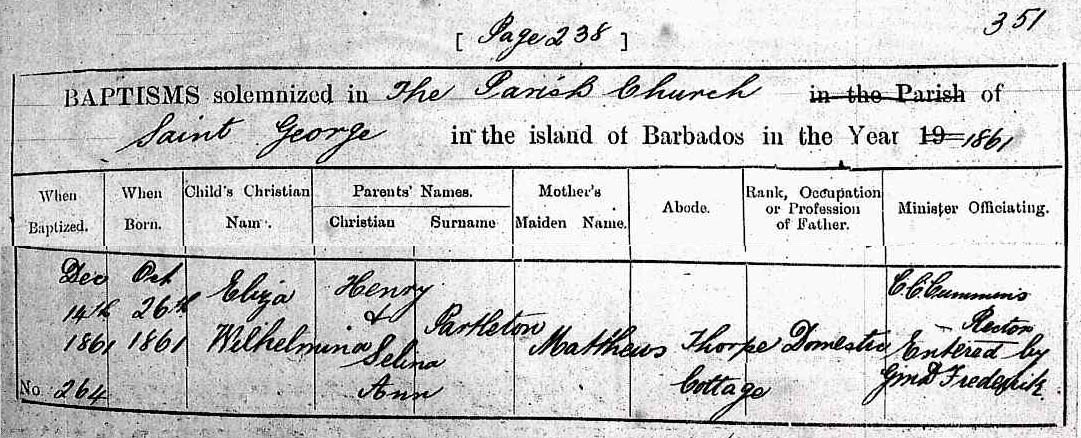 351
[ Page 238 ]
BAPTISMS solemnized in The Parish Church in the Parish of
Saint George in the island of Barbados in the Year 19 1861
When Baptized. When Born. Child's Christian Name. Parents' Names. Christian Surname Mother's Maiden Name. Abode. Rank, Occupation or Profession of Father. Minister Officiating.
Dec 14th 1861
Oct 26th 1861
Eliza Wilhelmina
Henry & Selina Ann
Partleton
Matthews
Thorpe Cottage
Domestic
C.C. Cummins
Rector
Entered by
Frederick
No 264